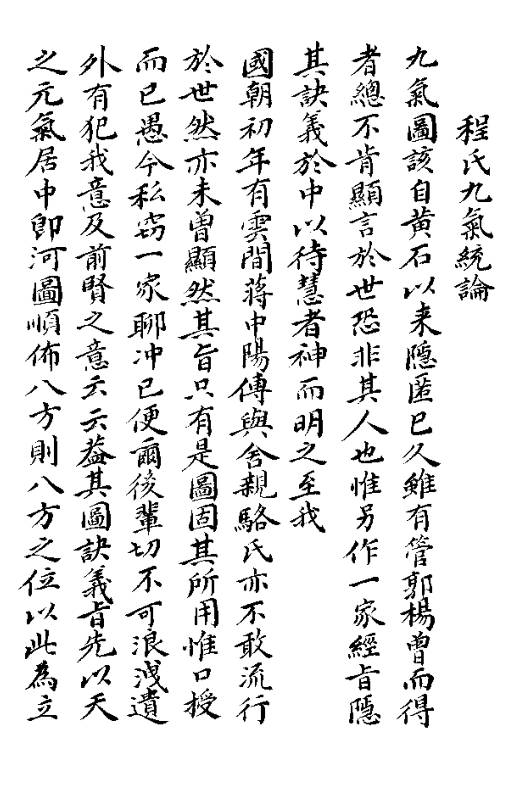 程氏九氣統論
九氣圖該自黃石以来隱匿已久雖有管郭楊曾而得
者總不肯顯言於世恐非其人也惟另作一家經旨隱
其訣義於中以待慧者神而明之至我
國朝初年有雲間蔣中陽傳與舍親駱氏亦不敢流行
於世然亦未曾顯然其旨只有是圖固其所用惟口授
而已愚今私窃一家聊冲已便爾後輩切不可浪洩遺
外有犯我意及前賢之意云云葢其圖訣義旨先以天
之元氣居中即河圖順佈八方則八方之位以此為立